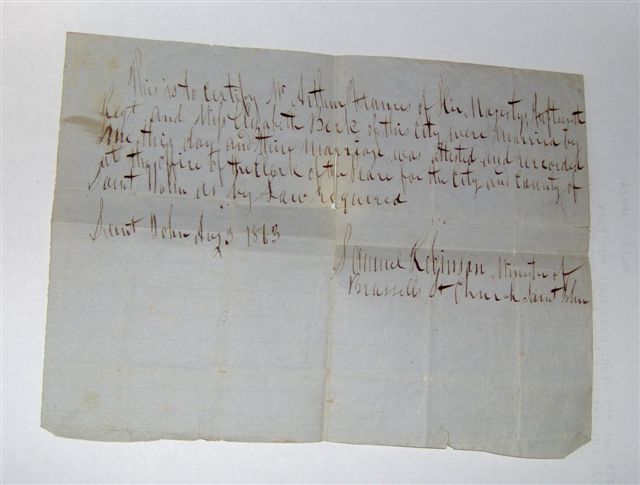 This is to certify Mr Arthur Hances of Her Majestys fifteenth
Regt and Miss Elizabeth Beek of this City were married by
me this day and their Marriage was attested and recorded
at the office of the Clerk of the Peace for the City and County of
Saint John as by Law required
Saint John Aug 3 1863
Samuel Robinson Minister of
Brussells St Church Saint John